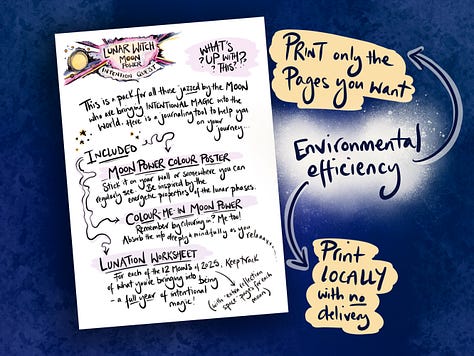 LUNAR WITCH
MOON
POWER
INTENTION QUEST
WHAT'S
?UP WITH!?
? THIS?
This is a pack for all those jazzed by the MOON
who are bringing INTENTIONAL MAGIC into the
world. Here is a journaling tool to help you
on your
journey...
INCLUDED
MOON POWER COLOUR POSTER
Stick it on your wall or somewhere you can
regularly see. Be inspired by the
energetic properties of the lunar phases.
COLOUR-ME-IN MOON POWER
Remember by colouring in? Me too!
Absorb the info deeply & mindfully as you
relaxxxx..
LUNATION WORKSHEET
For each of the 12 Moons of 2025, Keep track
of what you're bringing into being
- a full year of intentional
magic!
(with extra reflection
space pages for each
moon)
PRINT only the
Pages you want
Environmental
efficiency
Print
LOCALLY
with no
delivery